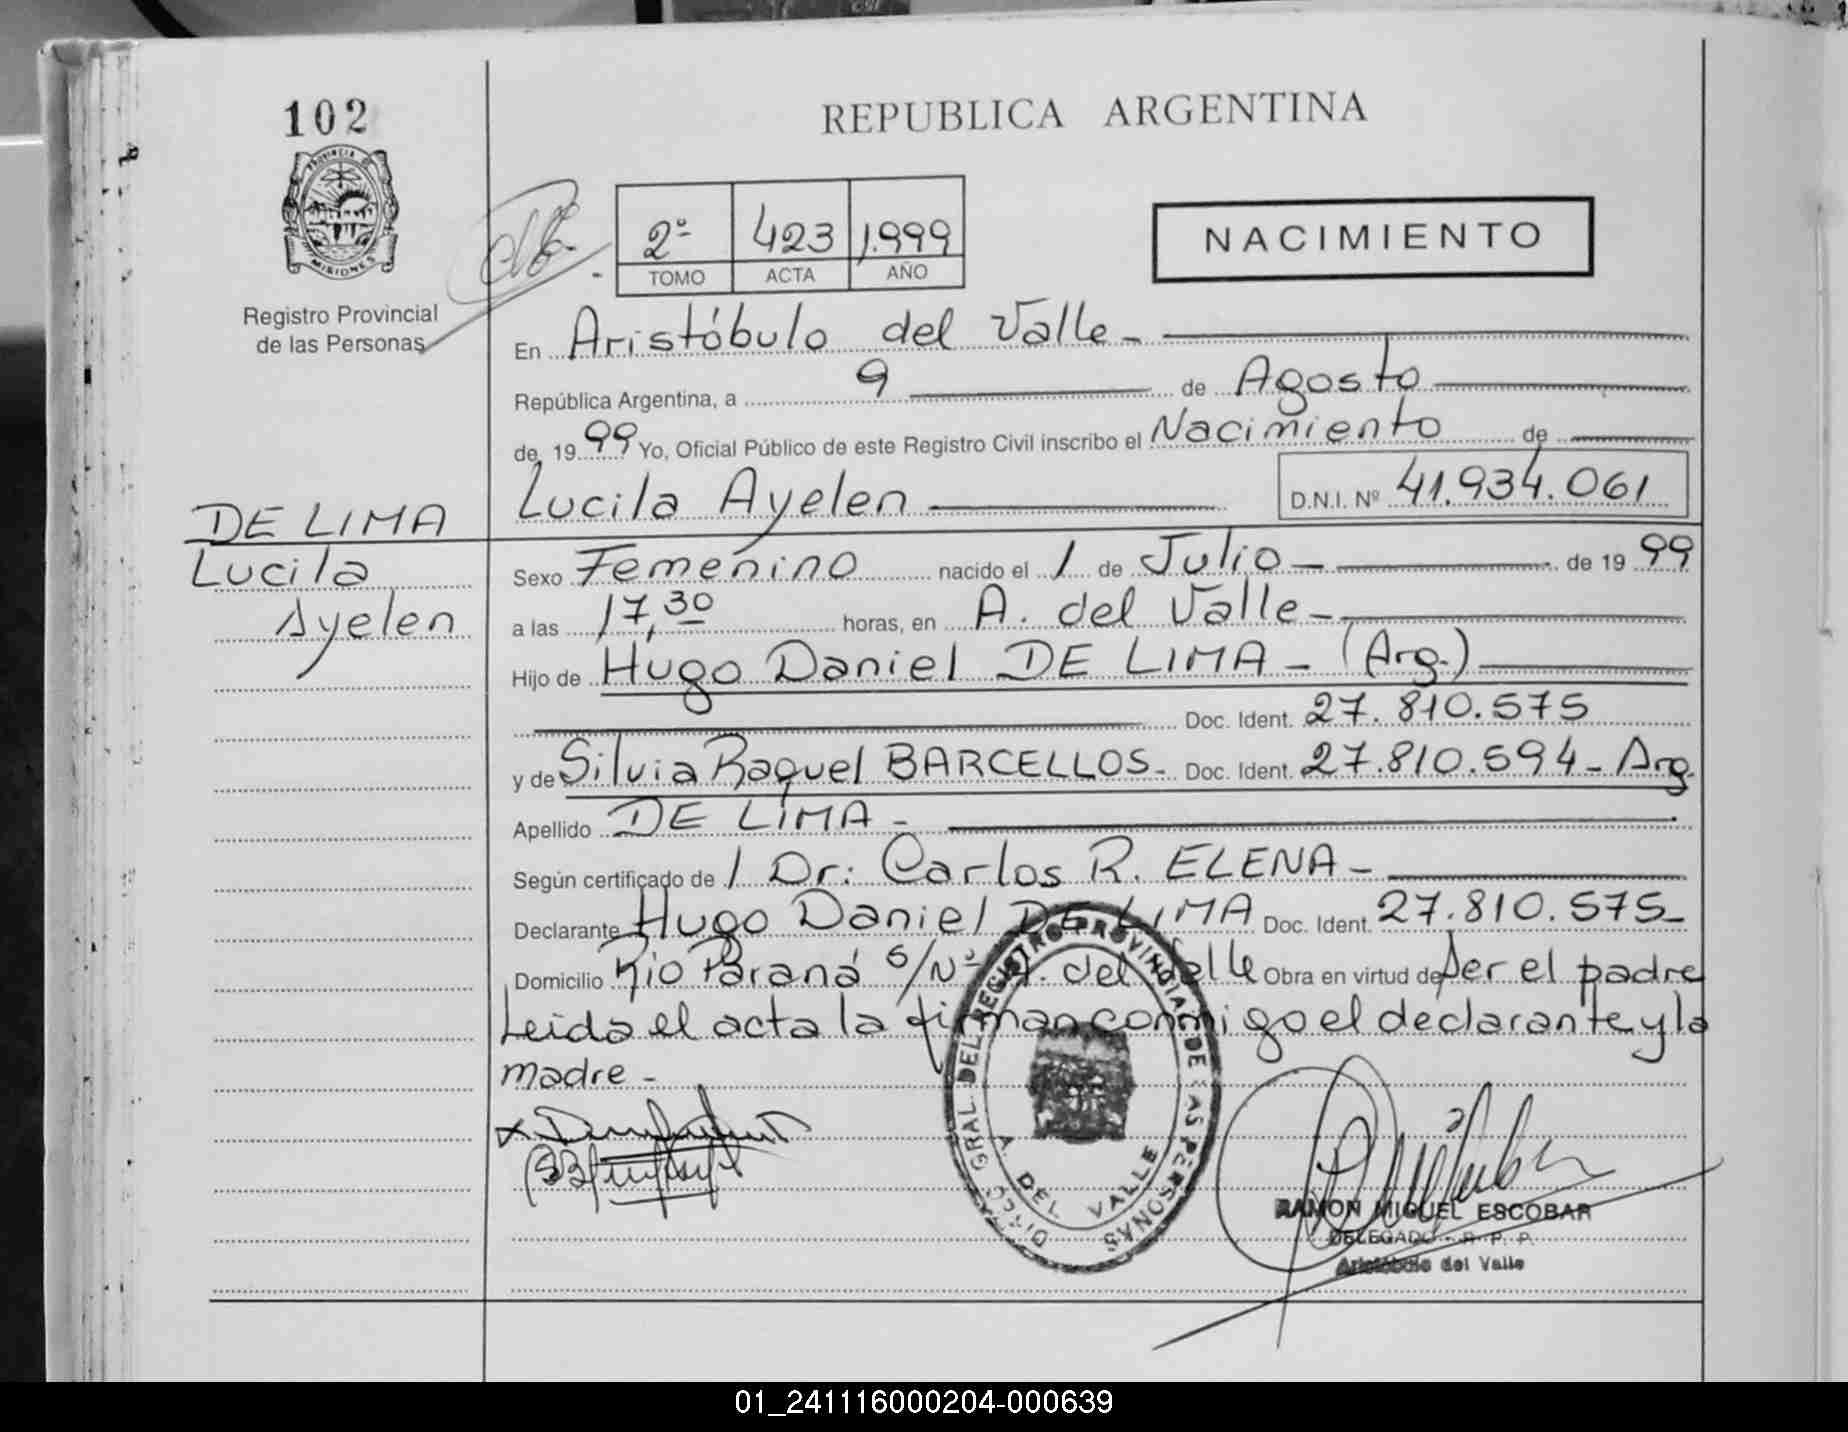 102
REPUBLICA ARGENTINA
PROVINCIA DE MISIONES
Registro Provincial
de las Personas
2º 423 1.999
TOMO ACTA AÑO
NACIMIENTO
En Aristóbulo del Valle -
República Argentina, a 9 de Agosto
de 1999 Yo, Oficial Público de este Registro Civil inscribo el Nacimiento de
Lucila Ayelen D.N.I. Nº 41.934.061
DE LIMA
Lucila
Ayelen
Sexo Femenino nacido el 1 de Julio - de 1999
a las 17,30 horas, en A. del Valle -
Hijo de Hugo Daniel DE LIMA - (Arg.)
Doc. Ident. 27.810.575
y de Silvia Raquel BARCELLOS - Doc. Ident. 27.810.594 - Arg.
Apellido DE LIMA -
Según certificado de / Dr: Carlos R. ELENA -
Declarante Hugo Daniel DE LIMA Doc. Ident. 27.810.575 -
Domicilio Río Paraná S/Nº A. del Valle Obra en virtud de ser el padre
Leida el acta la firman conmigo el declarante y la
madre -
DIRECC. GRAL. DEL REGISTRO PROVINCIAL DE LAS PERSONAS
A. DEL VALLE
RAMON MIGUEL ESCOBAR
DELEGADO - R. P. P.
Aristóbulo del Valle
01_241116000204-000639